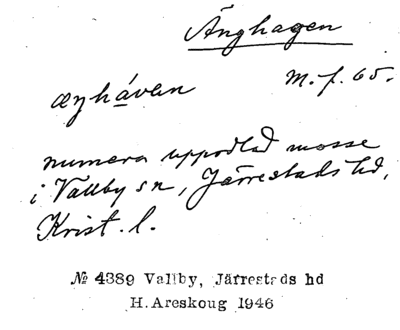 Änghagen
æŋhávan m.f. 65.
numera uppodlad mosse
i Vallby sn, Järrestads hd,
Krist. l.
№ 4389 Vallby, Järrestads hd
H. Areskoug 1946